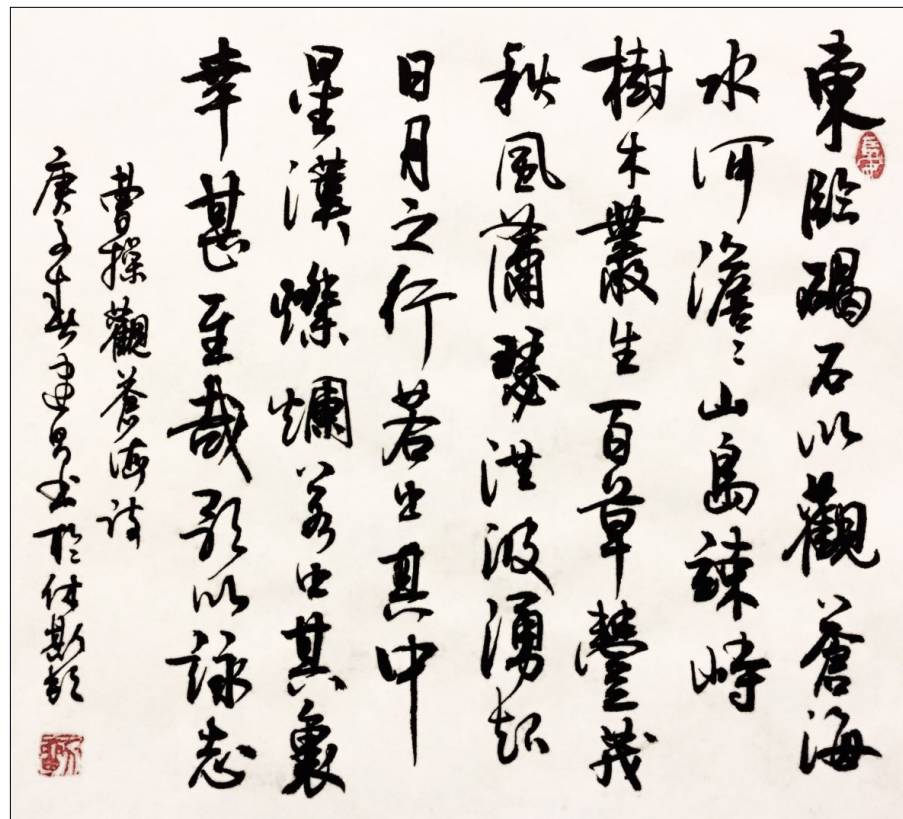 東臨碣石以觀蒼海
水何澹〻山島竦峙
樹木叢生百草豐茂
秋風蕭瑟洪波湧起
日月之行若出其中
星漢燦爛若出其裏
幸甚至哉歌以詠志
曹操觀蒼海詩
庚子春建昌書於休斯頓